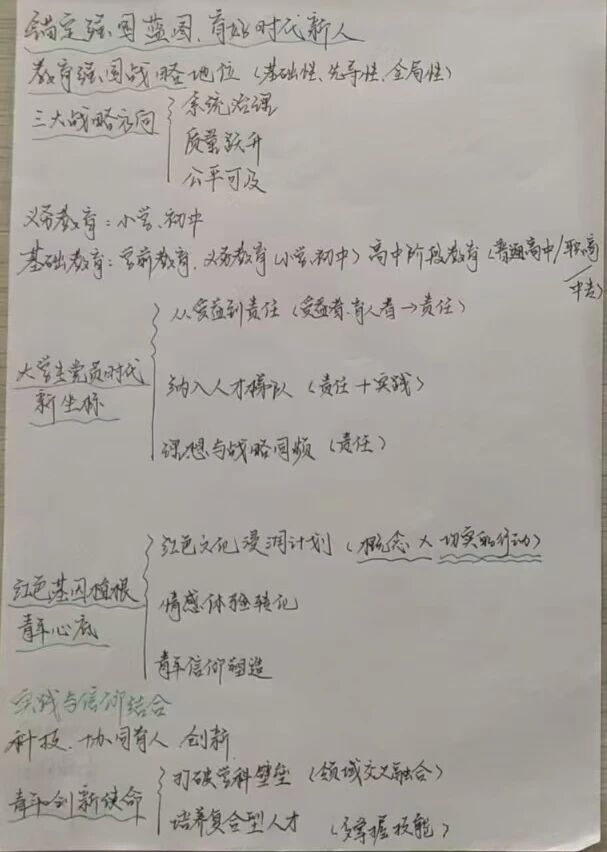 锚定强国蓝图,育好时代新人
教育强国战略地位(基础性、先导性、全局性)
三大战略方向
系统治理
质量跃升
公平可及
义务教育:小学、初中
基础教育:学前教育、义务教育(小学、初中)高中阶段教育(普通高中/职高/中专)
大学生党员时代
新坐标
从受益到责任(受益者、育人者→责任)
纳入人才梯队(责任+实践)
理想与战略同频(责任)
红色基因植根
青年心底
红色文化浸润计划(概念 × 切实的行动)
情感体验转化
青年信仰塑造
实践与信仰结合
科技、协同育人 创新
青年创新使命
打破学科壁垒(领域交叉融合)
培养复合型人才(多掌握技能)